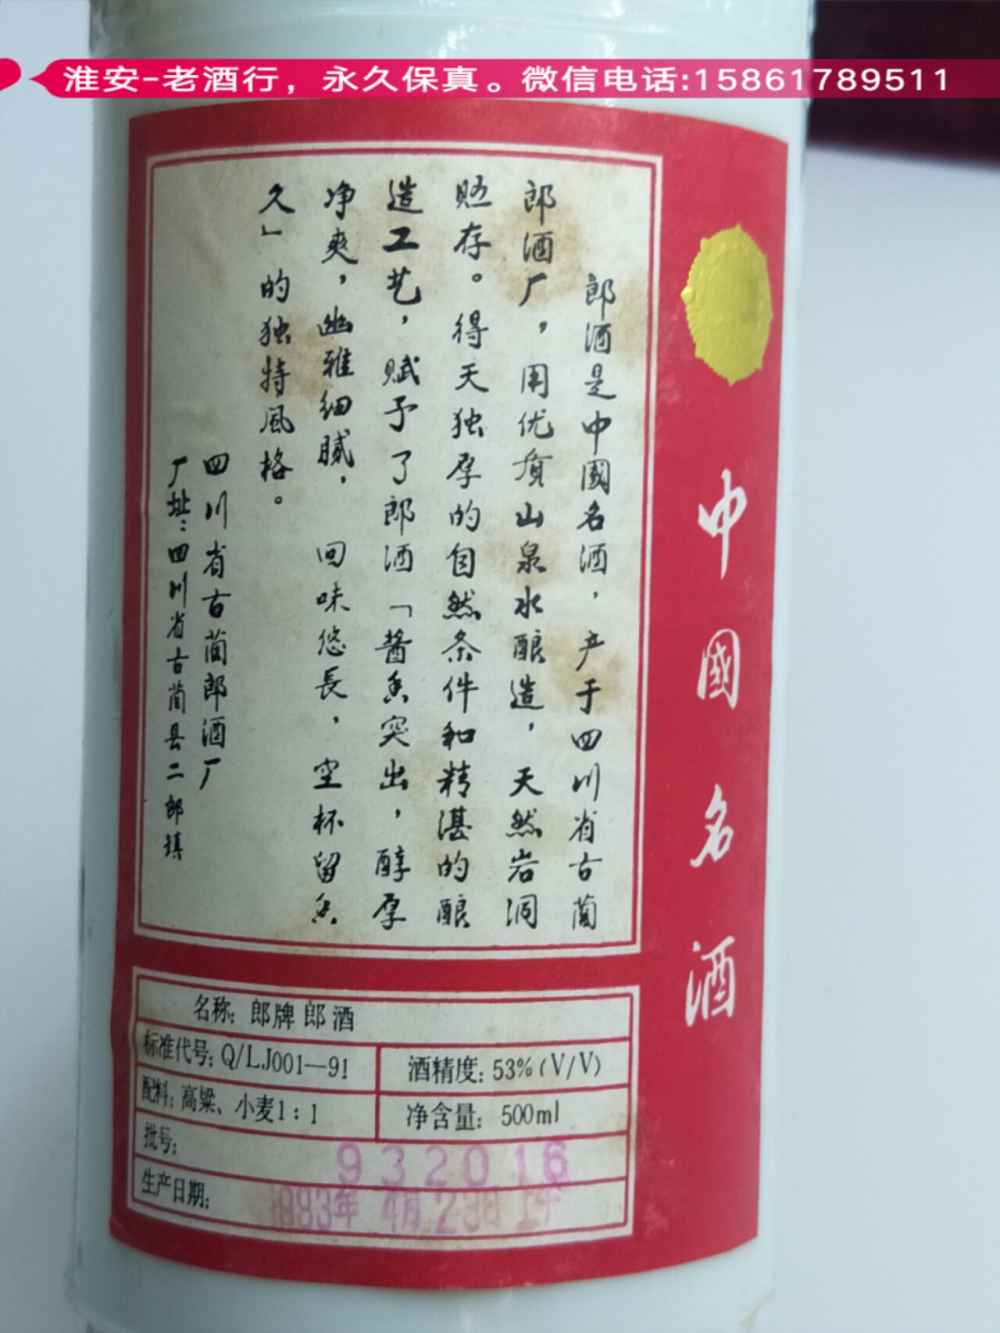 淮安-老酒行，永久保真。微信电话:15861789511
郎酒是中國名酒，产于四川省古蔺
郎酒厂，用优质山泉水酿造，天然岩洞
贮存。得天独厚的自然条件和精湛的酿
造工艺，赋予了郎酒「酱香突出，醇厚
净爽，幽雅细腻，回味悠長，空杯留香
久」的独特风格。
四川省古蔺郎酒厂
厂址：四川省古蔺县二郎镇
中國名酒
名称：郎牌郎酒
标准代号：Q/LJ001—91
酒精度：53%(V/V)
配料：高粱、小麦1：1
净含量：500ml
批号：932016
生产日期：1993年4月23日